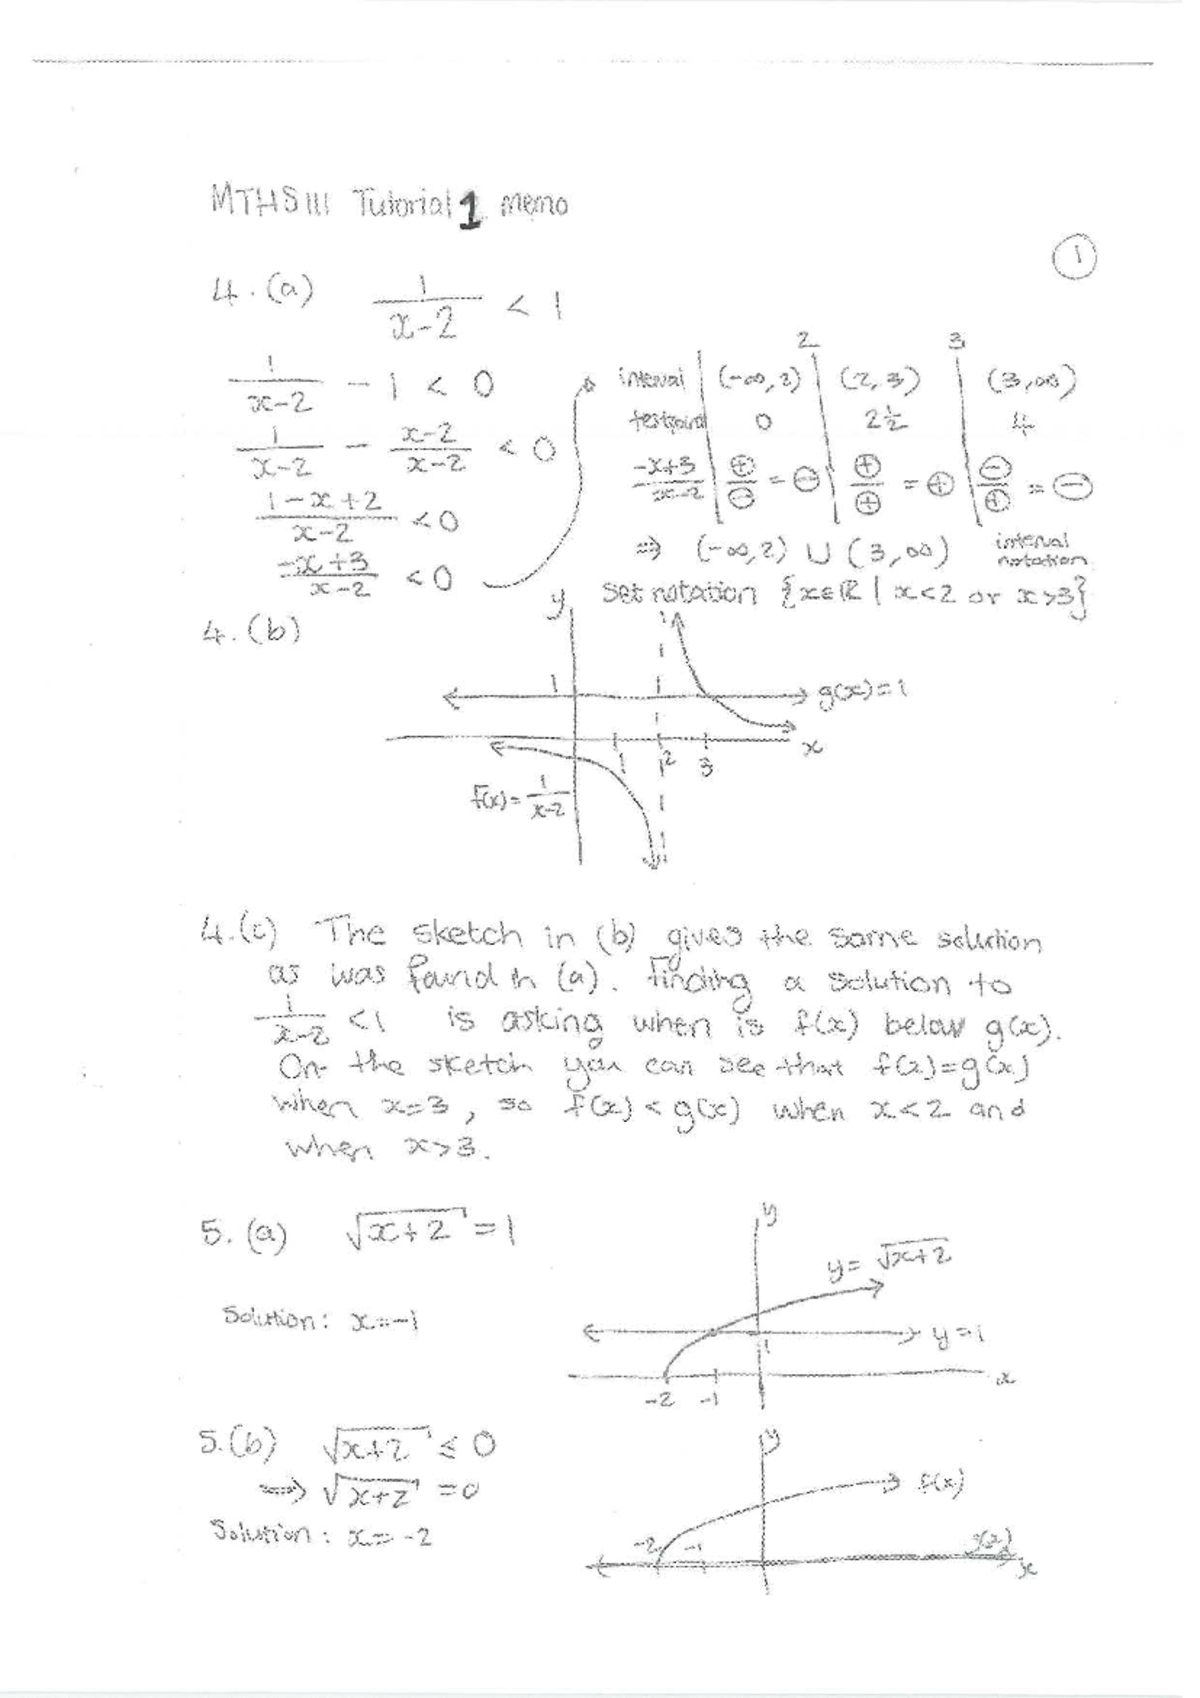 MTHS111 Tutorial 1 memo
1
4.(a) 1/(x-2) < 1
1/(x-2) - 1 < 0
1/(x-2) - (x-2)/(x-2) < 0
(1-x+2)/(x-2) < 0
(-x+3)/(x-2) < 0
2 3
interval | (-∞,2) | (2,3) | (3,∞)
testpoint | 0 | 2½ | 4
(-x+3)/(x-2) | ⊕/⊖ = ⊖ | ⊕/⊕ = ⊕ | ⊖/⊕ = ⊖
⇒ (-∞,2) ∪ (3,∞) interval notation
set notation {x∈ℝ | x<2 or x>3}
4.(b)
y
1
g(x)=1
x
1 2 3
f(x)= 1/(x-2)
4.(c) The sketch in (b) gives the same solution
as was found in (a). Finding a solution to
1/(x-2) <1 is asking when is f(x) below g(x).
On the sketch you can see that f(x)=g(x)
when x=3, so f(x) < g(x) when x<2 and
when x>3.
5.(a) √(x+2) = 1
y
y= √(x+2)
Solution: x=-1
y=1
1
x
-2 -1
5.(b) √(x+2) ≤ 0
y
⇒ √(x+2) = 0
f(x)
Solution: x= -2
-2 -1
x